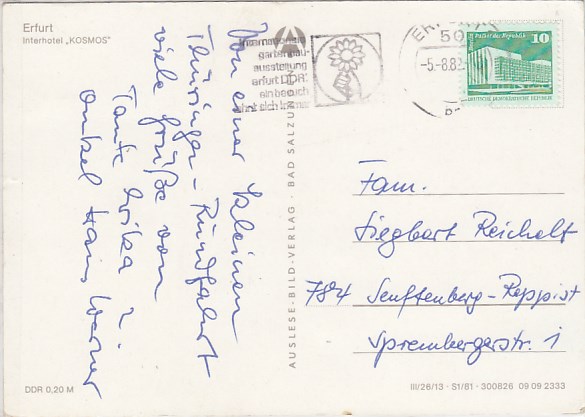 Erfurt
Interhotel „KOSMOS"
Von einer kleinen
Thüringen-Rundfahrt
viele Grüße von
Tante Erika u.
Onkel Hans Werner
Internationale
gartenbau-
ausstellung
erfurt DDR
ein besuch
lohnt sich immer
ERFURT
50
-5.-8.82
Palast der Republik
10
DEUTSCHE DEMOKRATISCHE REPUBLIK
AUSLESE-BILD-VERLAG · BAD SALZUNGEN
Fam.
Siegbart Reichelt
784 Senftenberg-Reppist
Sprembergerstr. 1
DDR 0,20 M
III/26/13 · S1/81 · 300826 09 09 2333